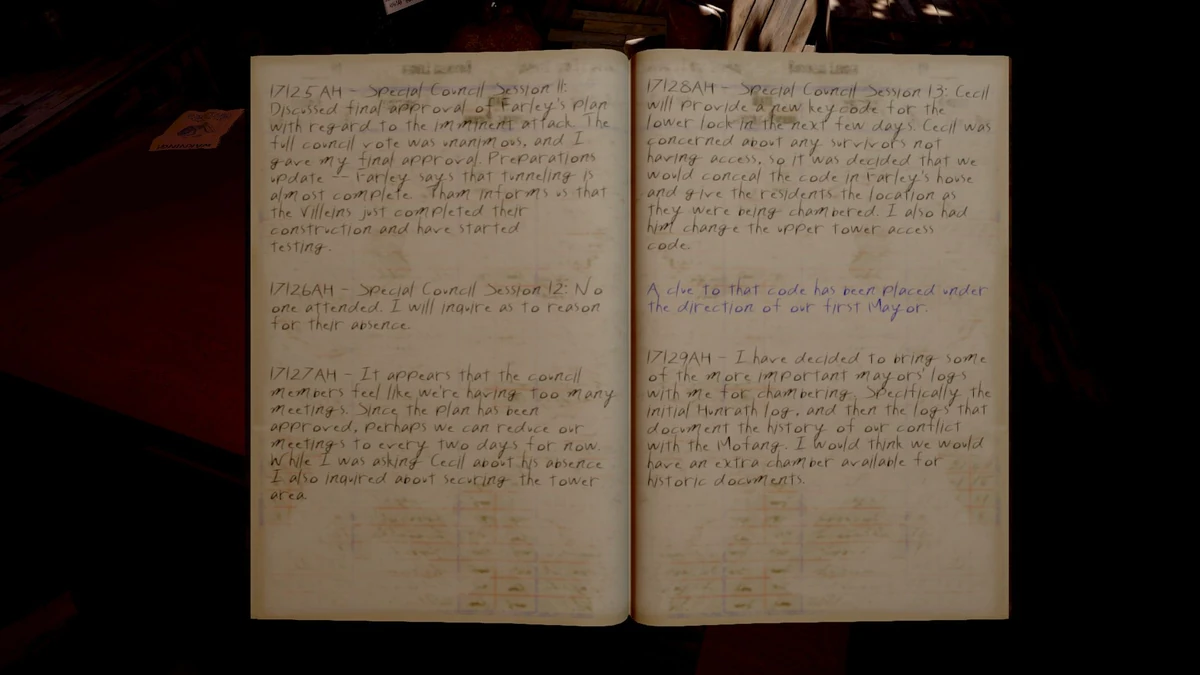 17125AH - Special Council Session 11:
Discussed final approval of Farley's plan
with regard to the imminent attack. The
full council vote was unanimous, and I
gave my final approval. Preparations
update -- Farley says that tunneling is
almost complete. Tham informs us that
the Villeins just completed their
construction and have started
testing.
17126AH - Special Council Session 12: No
one attended. I will inquire as to reason
for their absence.
17127AH - It appears that the council
members feel like we're having too many
meetings. Since the plan has been
approved, perhaps we can reduce our
meetings to every two days for now.
While I was asking Cecil about his absence
I also inquired about securing the tower
area.
17128AH - Special Council Session 13: Cecil
will provide a new keycode for the
lower lock in the next few days. Cecil was
concerned about any survivors not
having access, so it was decided that we
would conceal the code in Farley's house
and give the residents the location as
they were being chambered. I also had
him change the upper tower access
code.
A clue to that code has been placed under
the direction of our first Mayor.
17129AH - I have decided to bring some
of the more important mayors' logs
with me for chambering. Specifically the
initial Hunrath log, and then the logs that
document the history of our conflict
with the Mofang. I would think we would
have an extra chamber available for
historic documents.